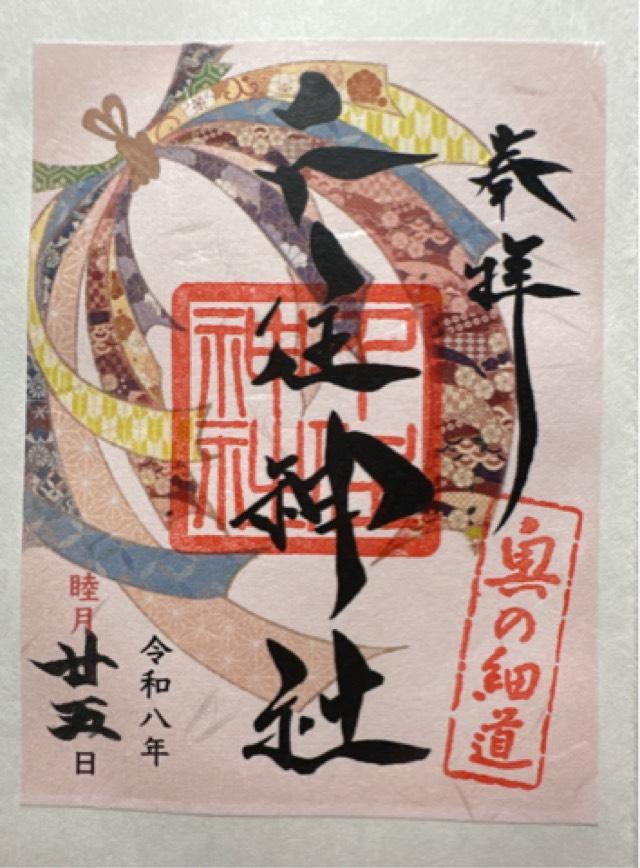 奉拝
奥の細道
住神社
神社
令和八年
睦月
廿五日